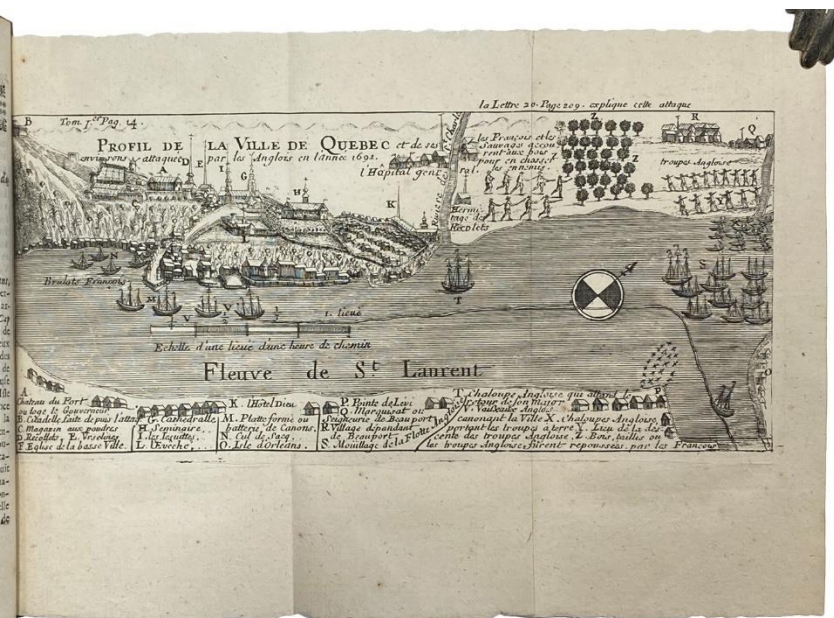 la Lettre 20. Page 209. explique cette attaque
B
Tom. I.er Pag. 14.
PROFIL DE LA VILLE DE QUEBEC et de ses
environs attaquée par les Anglois en l'année 1691.
l'Hapital gene
ral.
les François et les
Sauvages accou
rent aux bois
pour en chasser
les ennemis.
Z
Z
R
Q
troupes Angloise
A
D
E
F
I
G
H
K
Hermi
tage des
Recolets
N
Brulots François
M
V
V
T
S
1. lieue
Echelle d'une lieue d'une heure de chemin
Fleuve de St Laurent
A
Chateau du Fort
ou loge le Gouverneur
B. Citadelle faite depuis l'atta
C. Magazin aux poudres
D. Recollets E. Vrselines
F. Eglise de la basse Ville.
G. Cathedralle
H. Seminaire.
I. les Jesuittes.
L. Eveche.
K. l'Hôtel Dieu
M. Platte forme ou
batterie, de Canons.
N. Cul de Sacq.
O. Isle d'Orleans.
P. Pointe de Levi
Q. Marquisat ou
Seigneurie de Beauport
R. Village dépendant
de Beauport
S. Mouillage de la Flotte Angloise
T. Chaloupe Angloise qui attend le
retour de son Major
V. Vaisseaux Anglois
canonant la Ville X. Chaloupes Angloise,
portant les troupes à terre Y. Lieu de la des-
cente des troupes Angloise. Z. Bois, taillis ou
les troupes Angloise furent repoussées, par les François